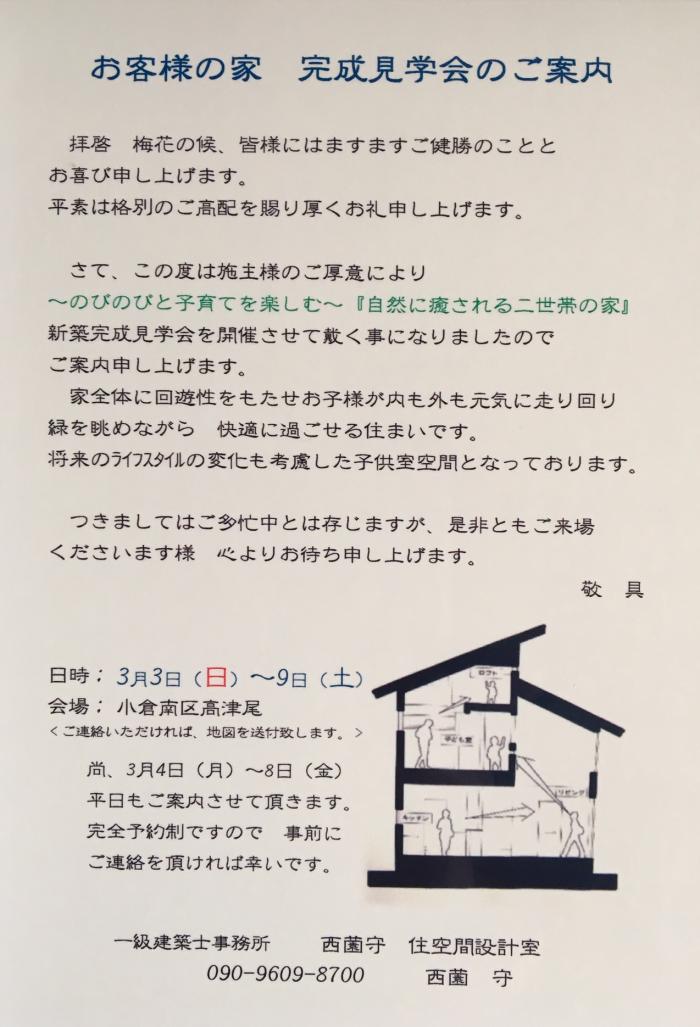 お客様の家　完成見学会のご案内
拝啓　梅花の候、皆様にはますますご健勝のことと
お喜び申し上げます。
平素は格別のご高配を賜り厚くお礼申し上げます。
さて、この度は施主様のご厚意により
～のびのびと子育てを楽しむ～『自然に癒される二世帯の家』
新築完成見学会を開催させて戴く事になりましたので
ご案内申し上げます。
家全体に回遊性をもたせお子様が内も外も元気に走り回り
緑を眺めながら　快適に過ごせる住まいです。
将来のﾗｲﾌｽﾀｲﾙの変化も考慮した子供室空間となっております。
つきましてはご多忙中とは存じますが、是非ともご来場
くださいます様　心よりお待ち申し上げます。
敬　具
日時；　3月3日（日）～9日（土）
会場；　小倉南区高津尾
＜ご連絡いただければ、地図を送付致します。＞
尚、3月4日（月）～8日（金）
平日もご案内させて頂きます。
完全予約制ですので　事前に
ご連絡を頂ければ幸いです。
ロフト
子ども室
リビング
キッチン
一級建築士事務所　　西薗守　住空間設計室
090-9609-8700　　西薗　守